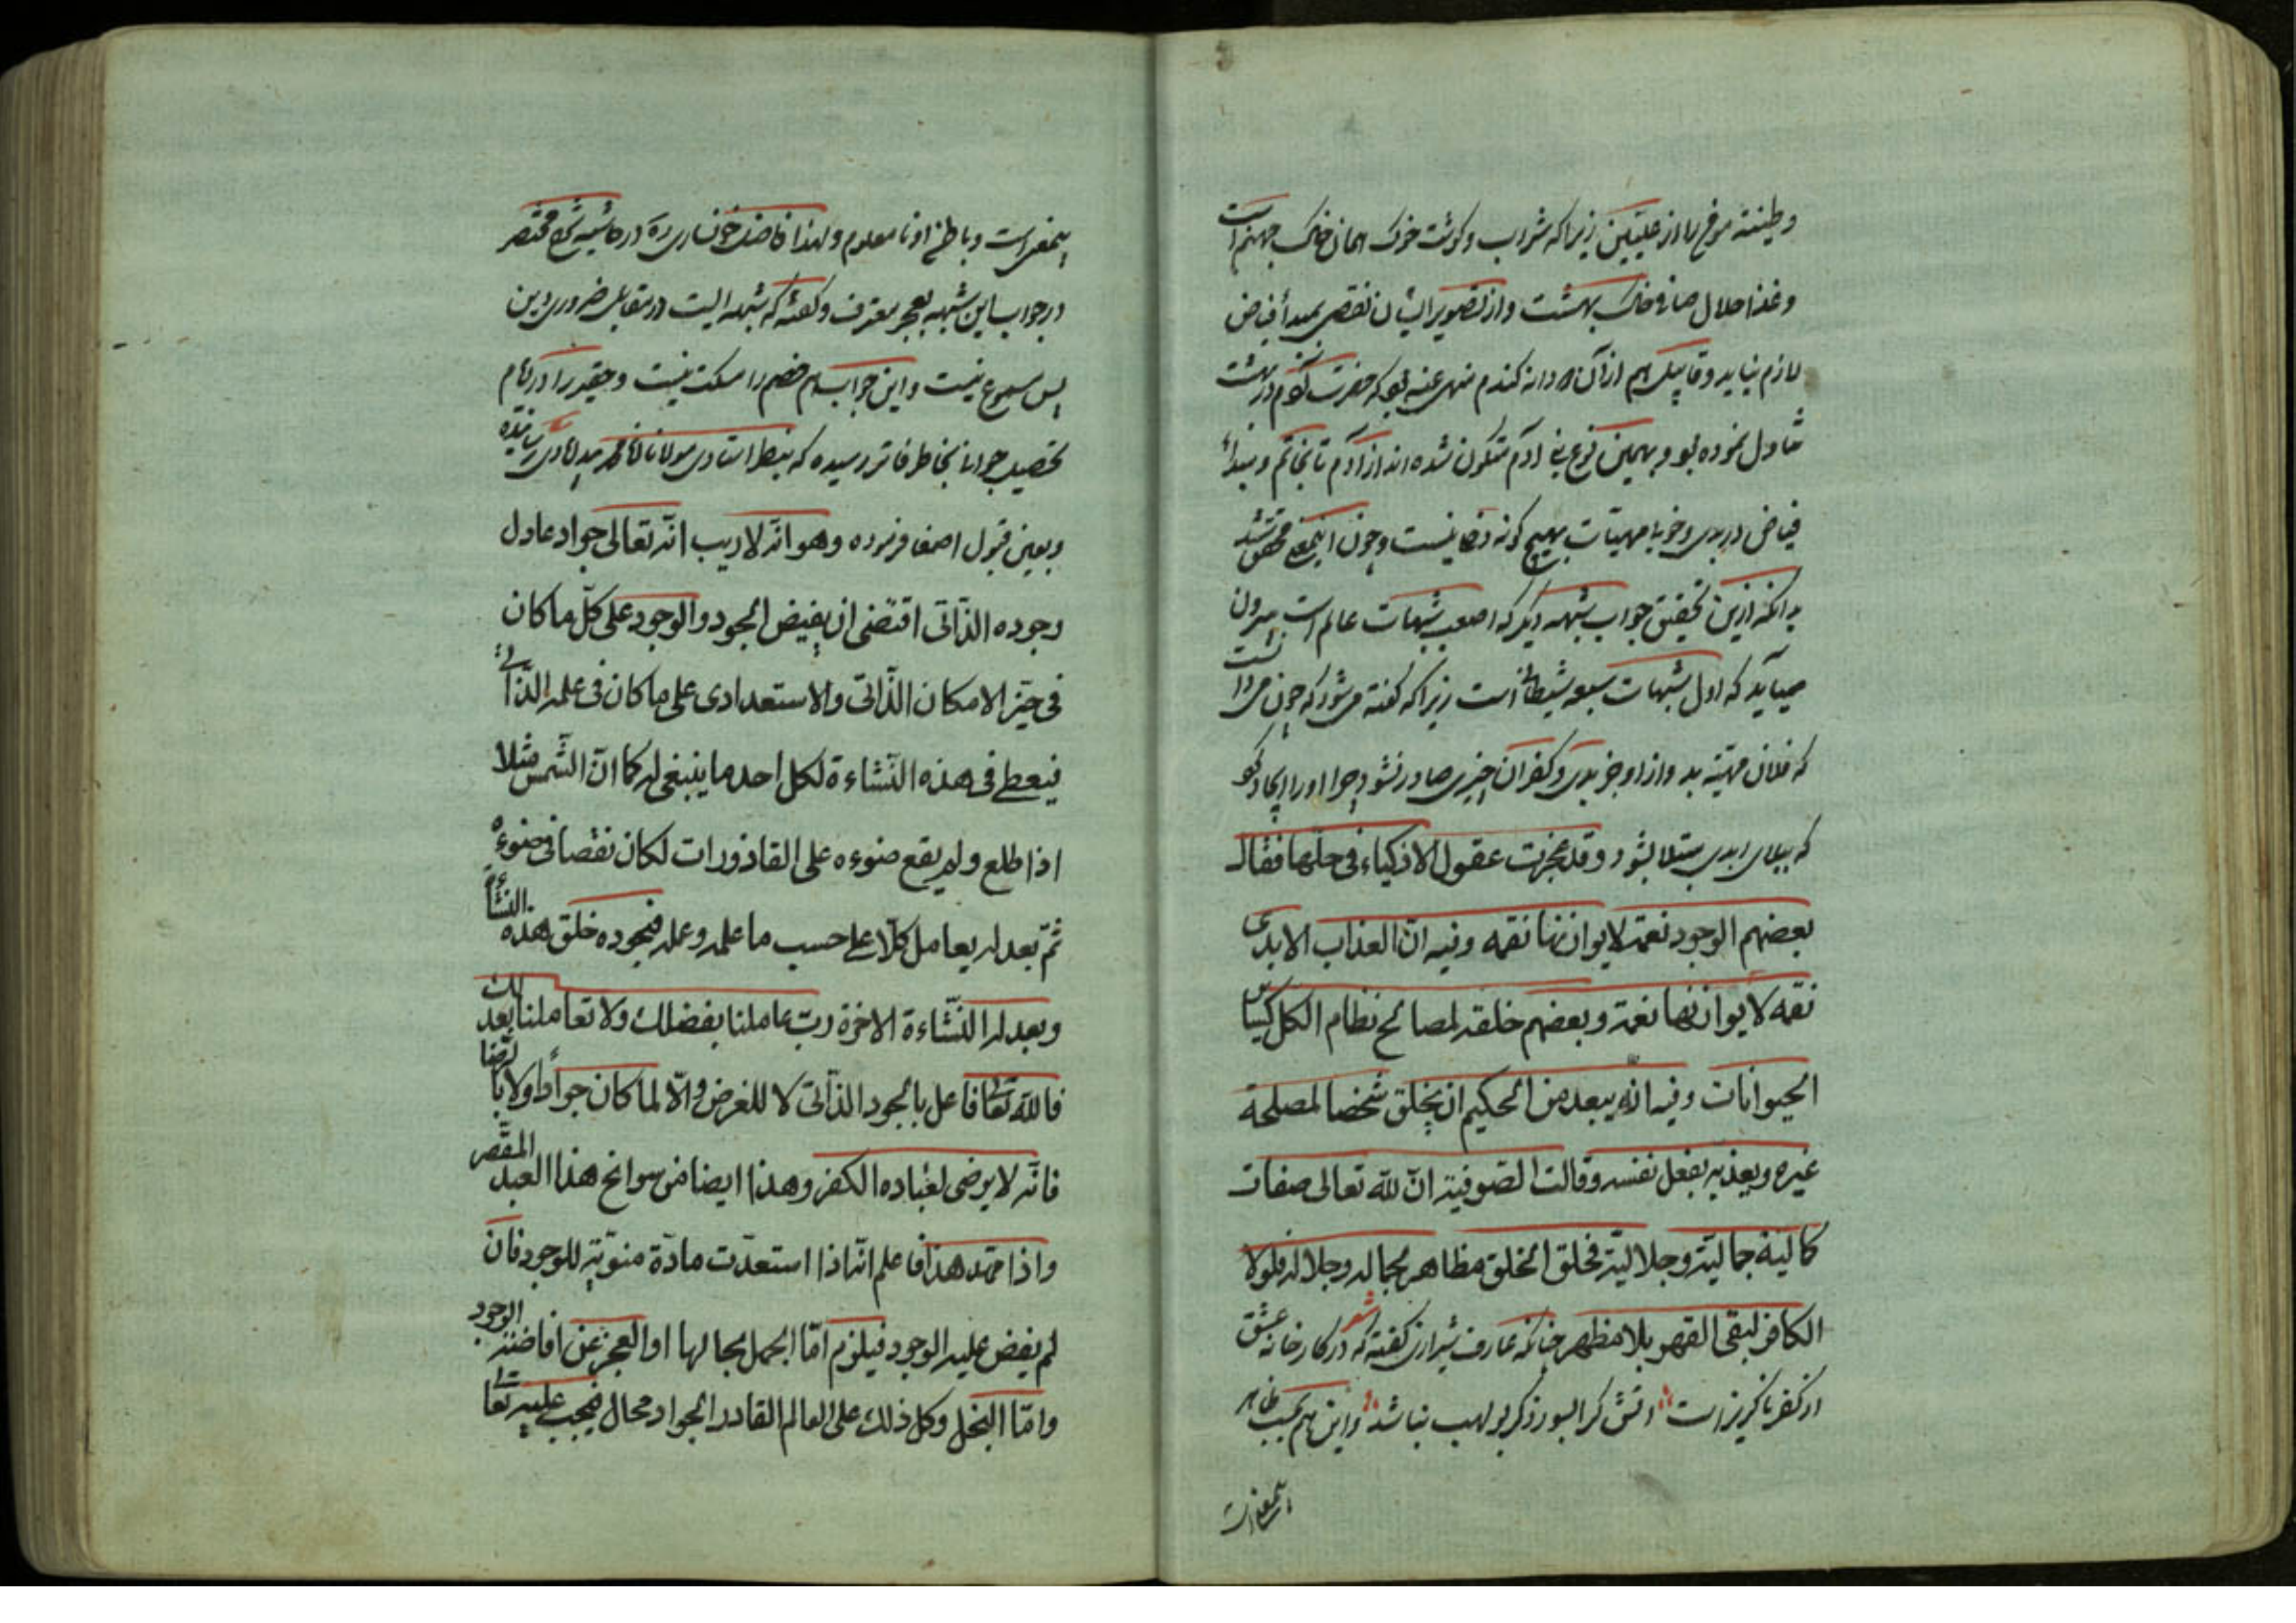 وطینته مؤمن را از علیین زیرا که شراب و گوشت خوک همان خاک جهنم است
وغذا حلال صاف خاک بهشت واز تصویر ایشان نقصی بمبدأ فیاض
لازم نیاید وقابیل هم از آن دانه کندم منهی عنه بود که حضرت آدم در بهشت
تناول نموده بود و بهمین نوع بنی آدم متکون شده اند از آدم تا بخاتم و مبدأ
فیاض در بدی وخوبی مهیات بهیچ کونه دخا نیست وچون اینمعنی محقق شد
بدانکه ازین تحقیق جواب شبهه دیکر که اصعب شبهات عالم است بیرون
میآید که اول شبهات سبعه شیطان است زیرا که کفته می شود که چون میدانست
که فلان مهیته بد واز او جز بدی وکفران چیزی صادر نشود چرا او را ایجاد کرد
که ببلای ابدی مبتلا بشود وقد عجزت عقول الاذکیاء فی حلها فقال
بعضهم الوجود نعمة لایوازنها نقمه وفیه انّ العذاب الابدی
نقمه لایوازنها نعمة وبعضهم خلقه لمصالح نظام الکل کسایر
الحیوانات وفیه انّه یبعد من الحکیم ان یخلق شخصا لمصلحة
غیره ویعذبه بفعل نفسه وقالت الصوفیة انّ لله تعالی صفات
کمالیة جمالیّة وجلالیّة فخلق الخلق مظاهر لجماله وجلاله فلولا
الکافر لبقی القهر بلا مظهر چنانکه عارف شیرازی کفته که شعر در کارخانه عشق
از کفر ناکزیر است اتش کرا بسوزد کر بولهب نباشد واین هم بحسب ظاهر
بیمغز است
بیمغز است وباطن او نامعلوم ولهذا فاضل خونساری ره در حاشیه شرح مختصر
در جواب این شبهه بعجز معترف وکفته که شبهه ایست در مقابل ضروری دین
پس مسموع نیست واین جواب هم خصم را مسکت نیست وحقیر را در ایام
تحصیل جوابا بخاطر فاتر رسیده که بنظر استادی مولانا محمد رسانیده
وبعین قبول اصغا فرموده وهو انّه لاریب انّه تعالی جواد عادل
وجوده الذّاتی اقتضی ان یفیض الجود والوجود علی کلّ ما کان
فی حیّز الامکان الذّاتی والاستعدادی علی ما کان فی علمه الذّاتی
فیعطی فی هذه النّشاءة لکل احد ما ینبغی له کما انّ الشّمس مثلا
اذا طلع ولم یقع ضوءه علی القاذورات لکان نقصا فی ضوءه
ثمّ بعدله یعامل کلّا علی حسب ما علمه وعمله فبجوده خلق هذه النشأة
وبعدله النّشاءة الاخرة ربّ عاملنا بفضلک ولا تعاملنا بعدلک
فالله تعالی فاعل بالجود الذّاتی لا للغرض والّا لما کان جوادا ولا بالرضا
فانّه لا یرضی لعباده الکفر وهذا ایضا من سوانح هذا العبد المقصر
واذا تمهد هذا فاعلم انّه اذا استعدّت مادّة منویّة للوجود فان
لم یفض علیه الوجود فیلزم امّا الجهل بحالها او العجز عن افاضته الوجود
وامّا البخل وکل ذلک علی العالم القادر الجواد محال فیجب علیه تعالی